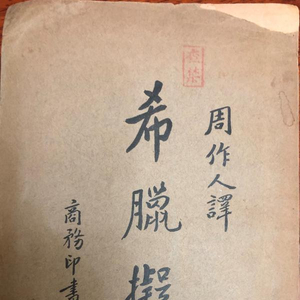 周作人譯
希臘擬
商務印書